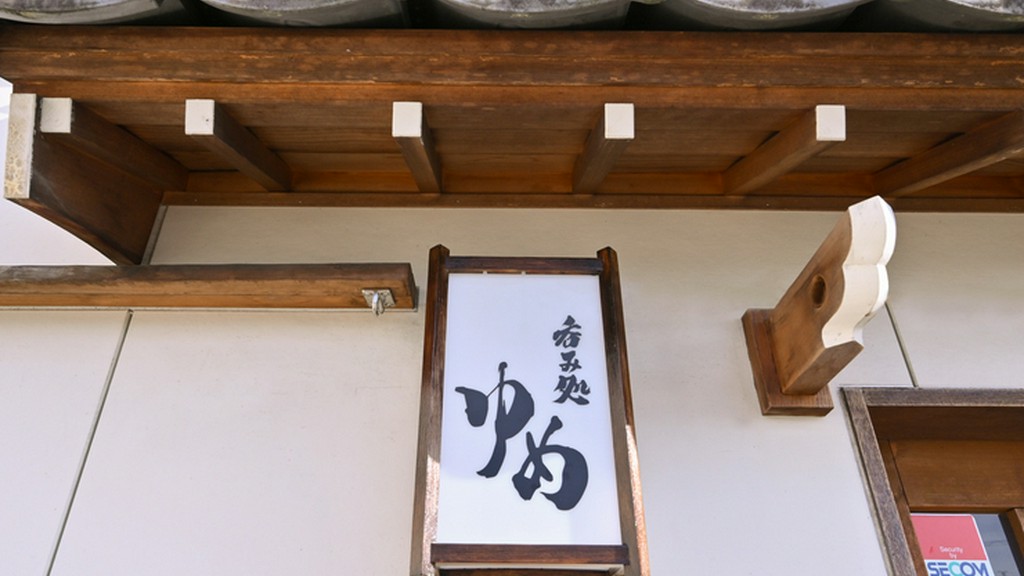 呑み処
ゆめ
Security
by
SECOM